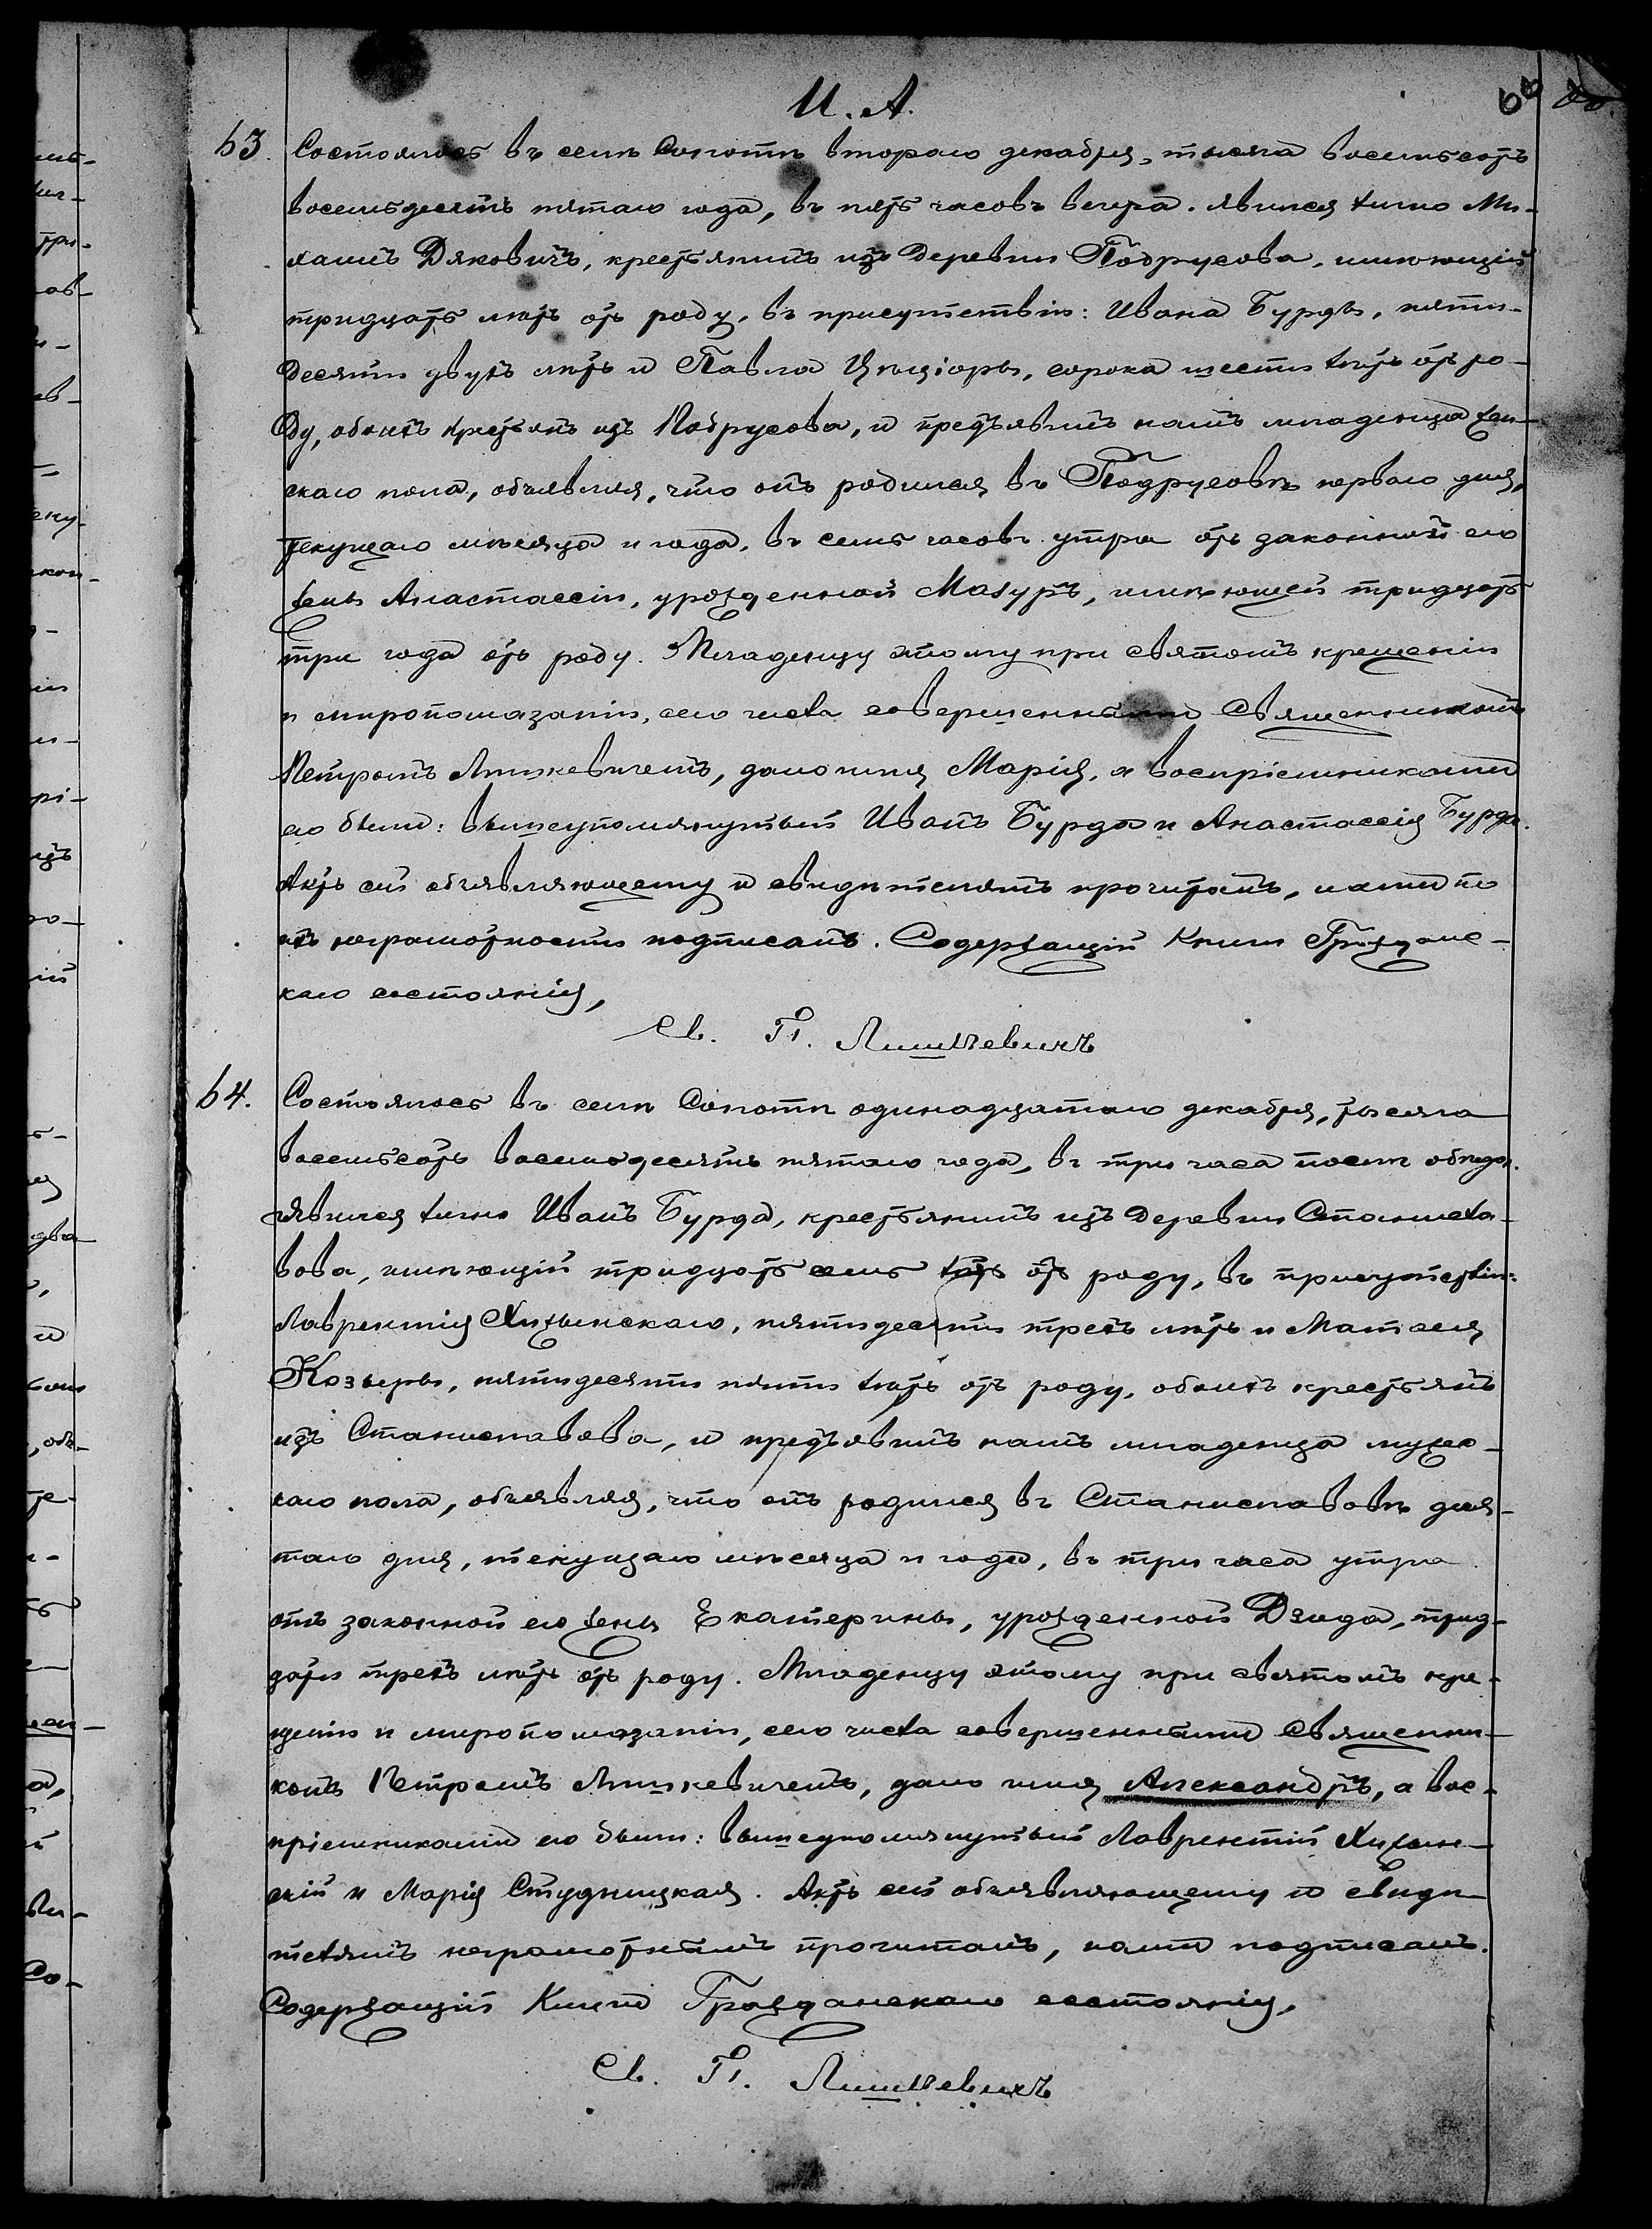 И. А.
63. Состоялось въ селѣ Сопотѣ втораго декабря, тысяча восемьсотъ
восемьдесятъ пятаго года, въ пять часовъ вечера. Явился лично Ми-
хаилъ Дяковичъ, крестьянинъ изъ деревни Подрусова, имѣющій
тридцать лѣтъ отъ роду, въ присутствіи: Ивана Бурды, пяти-
десяти двухъ лѣтъ и Павла, сорока шести лѣтъ отъ ро-
ду, обоихъ крестьянъ изъ Подрусова, и предъявилъ намъ младенца жен-
скаго пола, объявляя, что онъ родился въ Подрусовѣ перваго дня,
текущаго мѣсяца и года, въ семь часовъ утра отъ законной его
жены Анастассіи, урожденной Мазуръ, имѣющей тридцать
три года отъ роду. Младенцу этому при святомъ крещеніи
и миропомазаніи, сего числа совершенными священникомъ
Петромъ Лишкевичемъ, дано имя Марія, а воспріемниками
его были: вышеупомянутый Иванъ Бурда и Анастассія Бурда.
Актъ сей объявляющему и свидѣтелямъ прочитанъ, нами по
ихъ неграмотности подписанъ. Содержащій Книги Гражданс-
каго состоянія,
Св. П. Лишкевичъ
64. Состоялось въ селѣ Сопотѣ одинадцатаго декабря, тысяча
восемьсотъ восемьдесятъ пятаго года, въ три часа послѣ обѣда.
Явился лично Иванъ Бурда, крестьянинъ изъ деревни Станисла-
вова, имѣющій тридцать семь лѣтъ отъ роду, въ присутствіи:
Лаврентія Хижынскаго, пятидесяти трехъ лѣтъ и Матвея
Козыры, пятидесяти пяти лѣтъ отъ роду, обоихъ крестьянъ
изъ Станиславова, и предъявилъ намъ младенца мужес-
каго пола, объявляя, что онъ родился въ Станиславовѣ девя-
таго дня, текущаго мѣсяца и года, въ три часа утра
отъ законной его жены Екатерины, урожденной Дзида, трид-
цати трехъ лѣтъ отъ роду. Младенцу этому при святомъ кре-
щеніи и миропомазаніи, сего числа совершенными священни-
комъ Петромъ Лишкевичемъ, дано имя Александръ, а вос-
пріемниками его были: вышеупомянутый Лаврентій Хижын-
скій и Марія Студницкая. Актъ сей объявляющему и свидѣ-
телямъ неграмотнымъ прочитанъ, нами подписанъ.
Содержащій Книги Гражданскаго состоянія,
Св. П. Лишкевичъ